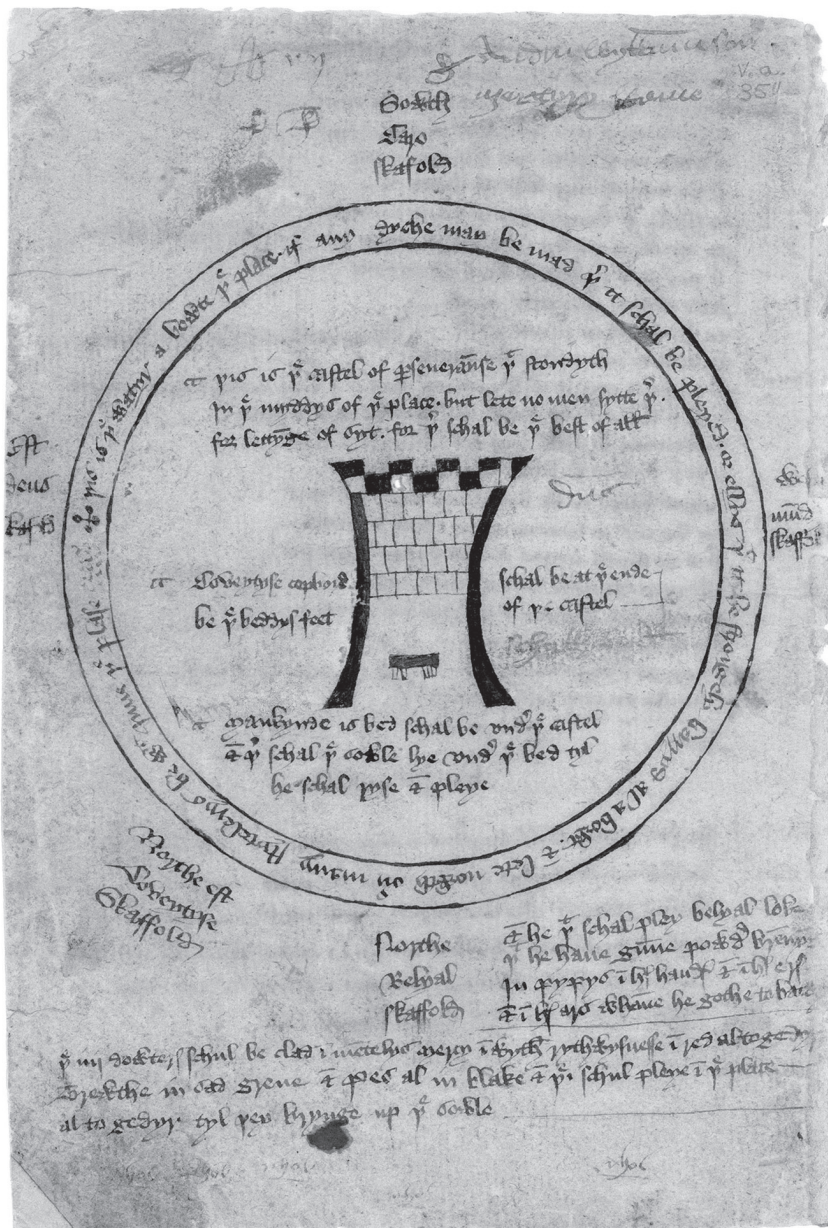 v. a.
354
Sowth
Caro
skafold
þis is þe watyr a bowte þe place. if any dyche may be mad þer it schal be pleyed. or ellys þt it be stronglyʼ barryd al a bowt. & lete nowth ouyr many stytelerys be wtinne þe plase
þis is þe castel of pseueraũnse þt stondyth
In þe myddys of þe place. but lete no men sytte þer.
for lettyng of syt. for þer schal be þe best of all
Est
deus
skafold
mũd
skaffold
Coveytyse copbord
be þe beddys feet
schal be at þe ende
of þe castel
Mankynde is bed schal be vndyr þe castel
& þer schal þe sowle lye vndyr þe bed tyl
he schal ryse & pleye
Northe est
Coveytyse
Skaffold
Northe
Belyal
skaffold
& he þt schal pley belyal loke
þt he haue gũne powdyr brennyng
In pypys ĩ hs handys & ĩ hs erys
& ĩ hs ars whãne he gothe to batayl
þe iiij dowterys schul be clad ĩ mẽtelys mercy ĩ wyth rythwysnesse ĩ red altogedyr
Trewthe in sad grene & Pes al in blake & þei schul pleye ĩ þe place
al to gedyr tyl þey brynge up þe sowle